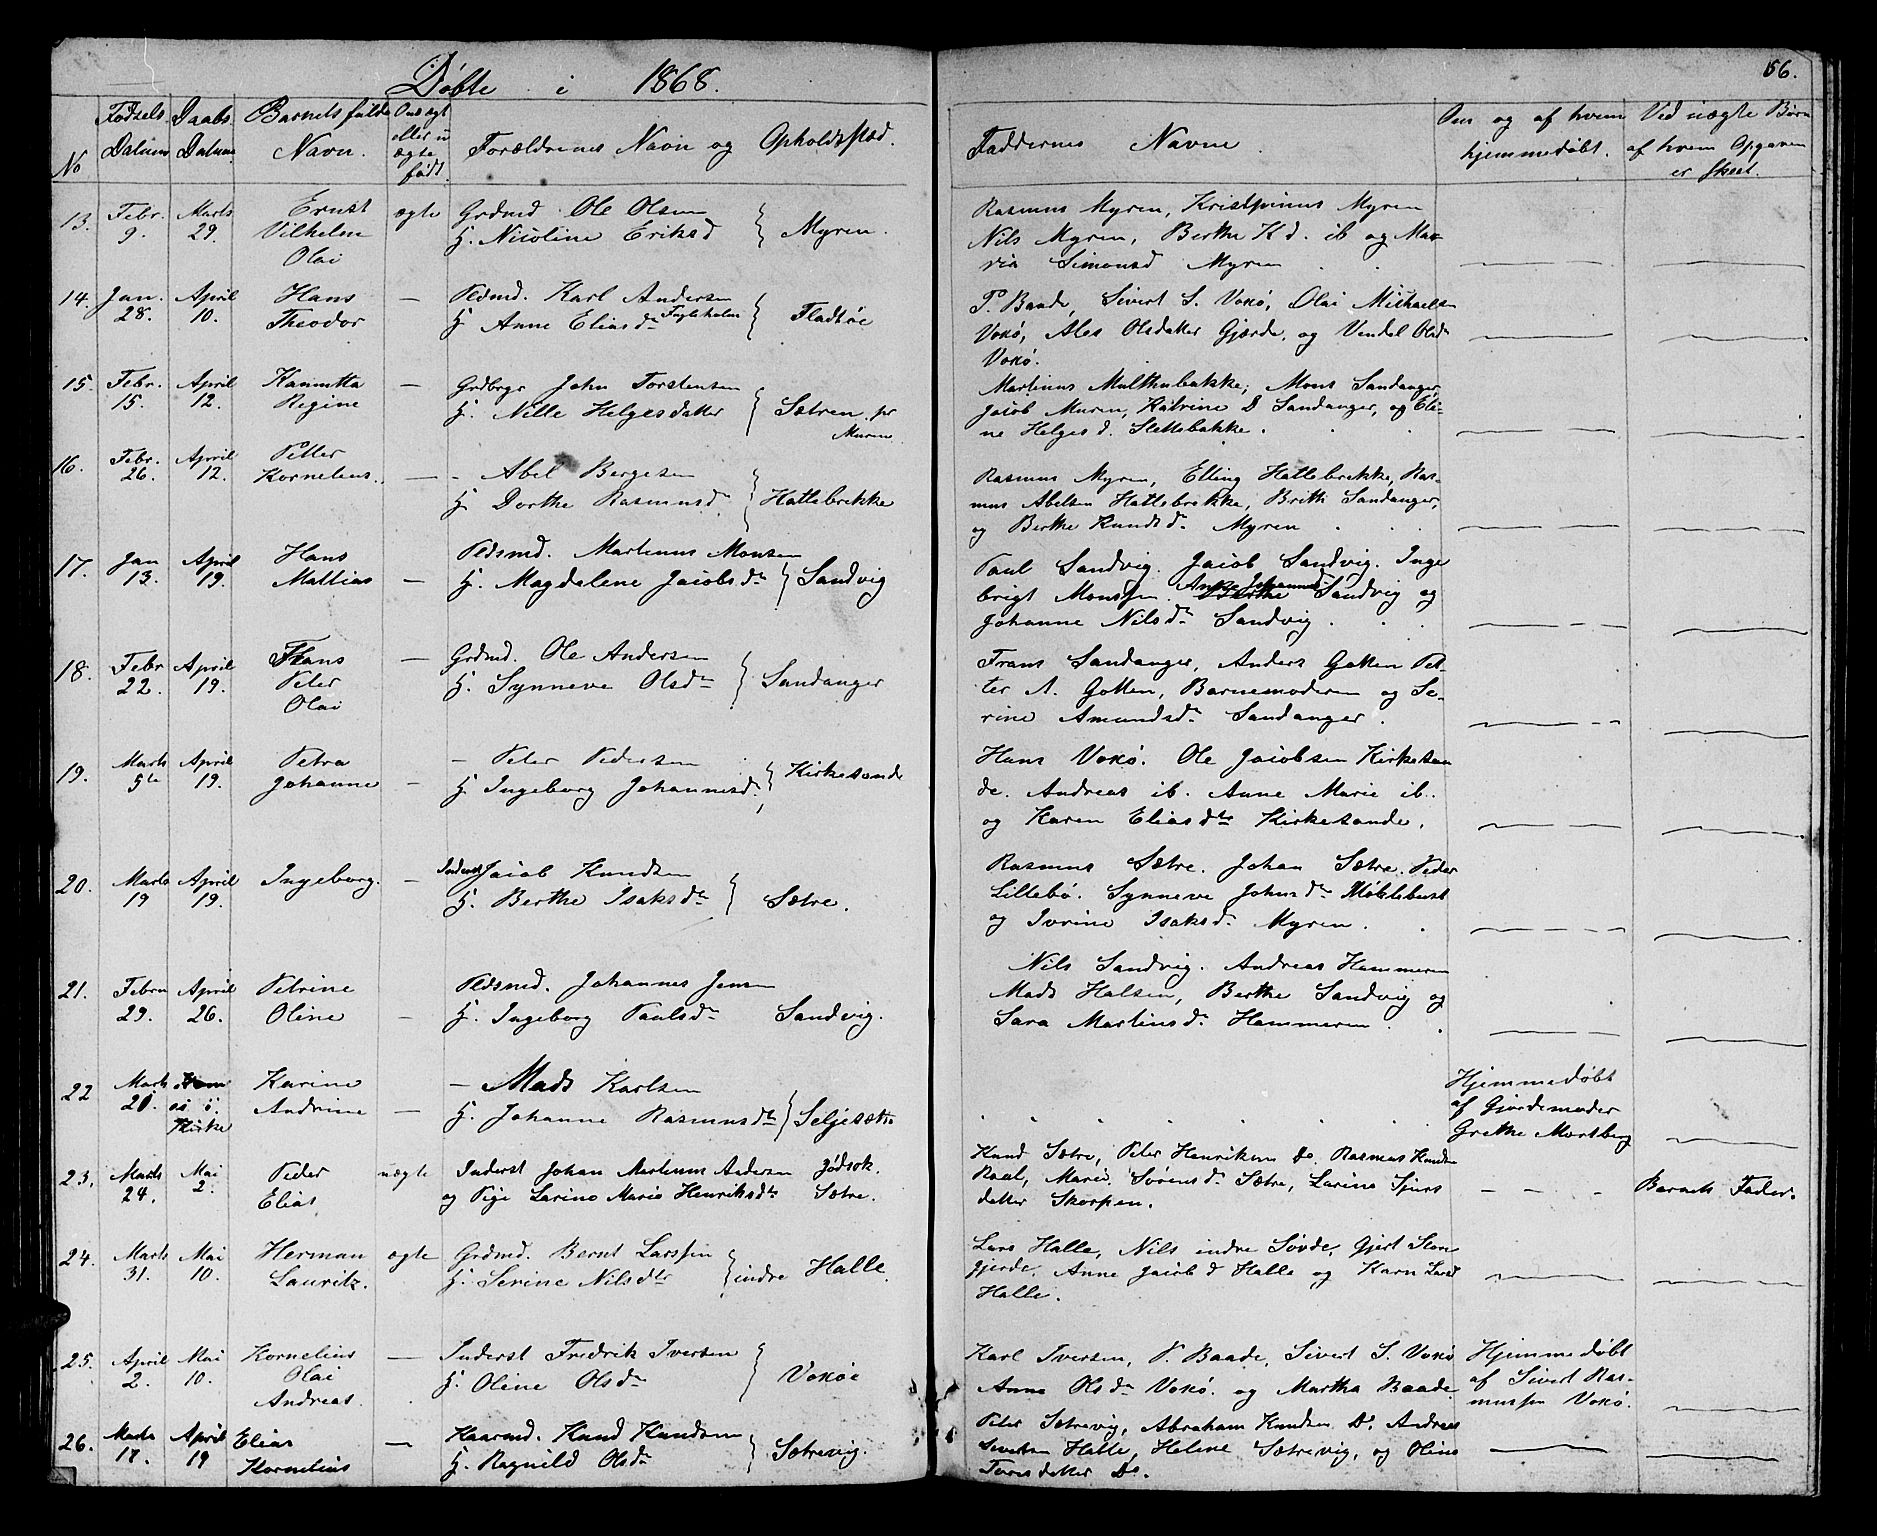 Døbte i 1868.
56.
No
Fødsels Datum
Daabs Datum
Barnets fulde Navn.
Om ægte eller uægte født.
Forældrenes Navn og Opholdssted.
Faddernes Navne.
Om og af hvem hjemmedøbt.
Ved uægte Børn af hvem Opgaven er skeet.
13. Febr. 9. Marts 29. Ernst Vilhelm Olai ægte
Grdmd Ole Olsen
H. Nicoline Eriksd } Myren.
Rasmus Myren, Kristpinus Myren
Nils Myren, Berthe K d. ib og Ma-
ria Simonsd Myren
14. Jan. 28. April 10. Hans Theodor —
Pldmd. Karl Andersen
H Anne Eliasdr Fugleholm } Fladtøe
P. Baade, Sivert S. Voxø, Olai Michaelsen
Voxø, Ales Olsdatter Gjærde, og Vendel Olsdr
Voxø.
15. Febr. 15. April 12. Kanutta Regine —
Grdbrgr John Torstensen
H. Nille Helgesdatter } Sætren pr Muren.
Martinus Multhubakke, Mons Sandanger,
Jacob Muren, Katrine D Sandanger, og Eli-
ne Helges d. Slettebakke.
16. Febr. 26. April 12. Petter Kornelius. —
- Abel Bergesen
H. Dorthe Rasmusdr } Hatlebrekke
Rasmus Myren, Elling Hatlebrekke, Ras-
mus Abelsen Hatlebrekke, Brithe Sandanger,
og Berthe Knudsdr Myren
17. Jan 13. April 19. Hans Mathias —
Pldsmd. Martinus Monsen
H. Magdalene Jacobsdr } Sandvig
Paul Sandvig. Jacob Sandvig. Inge
brigt Monssen. Anne Johannesd Sandvig og
Johanne Nilsdr Sandvig.
18. Febr 22. April 19. Hans Peter Olai —
Grdmd. Ole Andersen
H. Synneve Olsdr } Sandanger
Frans Sandanger, Anders Gotten Pet-
ter A. Gotten, Barnemoderen og Se-
rine Amundsdr Sandanger.
19. Marts 5te April 19. Petra Johanne —
- Peter Pedersen
H. Ingeborg Johannesdr } Kirkesande
Hans Voxø. Ole Jacobsen Kirkesan
de. Andreas ib. Anne Marie ib.
og Karen Eliasdtr Kirkesande.
20. Marts 19 April 19. Ingeborg. —
Inderst Jacob Knudsen
H. Berthe Isaksdr } Sætre.
Rasmus Sætre. Johan Sætre. Peder
Lillebø. Synneve Johnsdr Møklebust
og Ivrine Isaksdr Myren.
21. Febru 29. April 26. Petrine Oline —
Pldsmd. Johannes Jensen
H. Ingeborg Paulsdr Sandvig.
Nils Sandvig. Andreas Hammeren
Mads Halsen, Berthe Sandvig og
Sara Martinsdr Hammeren.
22 Marts Kom ei i Kirke Karine Andrine —
- Mads Karlsen
H. Johanne Rasmusdtr } Seljesætr
Hjemmedøbt
af Gjordemoder
Grethe Mortberg
23. Marts 24. Mai 2. Peder Elias uægte
Inderst Johan Martinus Andersen Jødsok.
og Pige Larine Marie Henriksdtr Sætre.
Knud Sætre, Peter Henriksen Do Rasmus Knudsen
Raal, Marie Sørensdr Sætre, Larine Sjurs
datter Skorpen.
Barnets Fader.
24. Marts 31. Mai 10. Herman Lauritz. ægte
Grdmd. Bernt Larssen
H. Serine Nilsdtr } indre Halle.
Lars Halle, Nils indre Søvde, Gjert Ston
gjerde, Anne Jacob d Halle og Karn Larsd
Halle.
25. April 2. Mai 10. Kornelius Olai Andreas. —
Inderst Fredrik Iversen
H. Oline Olsdr } Voxøe
Karl Iversen, P. Baade, Sivert S. Voxø
Anne Olsdr Voxø. og Martha Baade
Hjemmedøbt
af Sivert Ras-
mussen Voxø.
26. Marts 17. April 19 Elias Kornelius —
Haarmd. Knud Knudsen
H. Ragnild Olsdr } Sætrevig.
Peter Sætrevig, Abraham Knudsen Do Andreas
Sivertsen Halle, Helene Sætrevig, og Oline
Toresdatter Do.